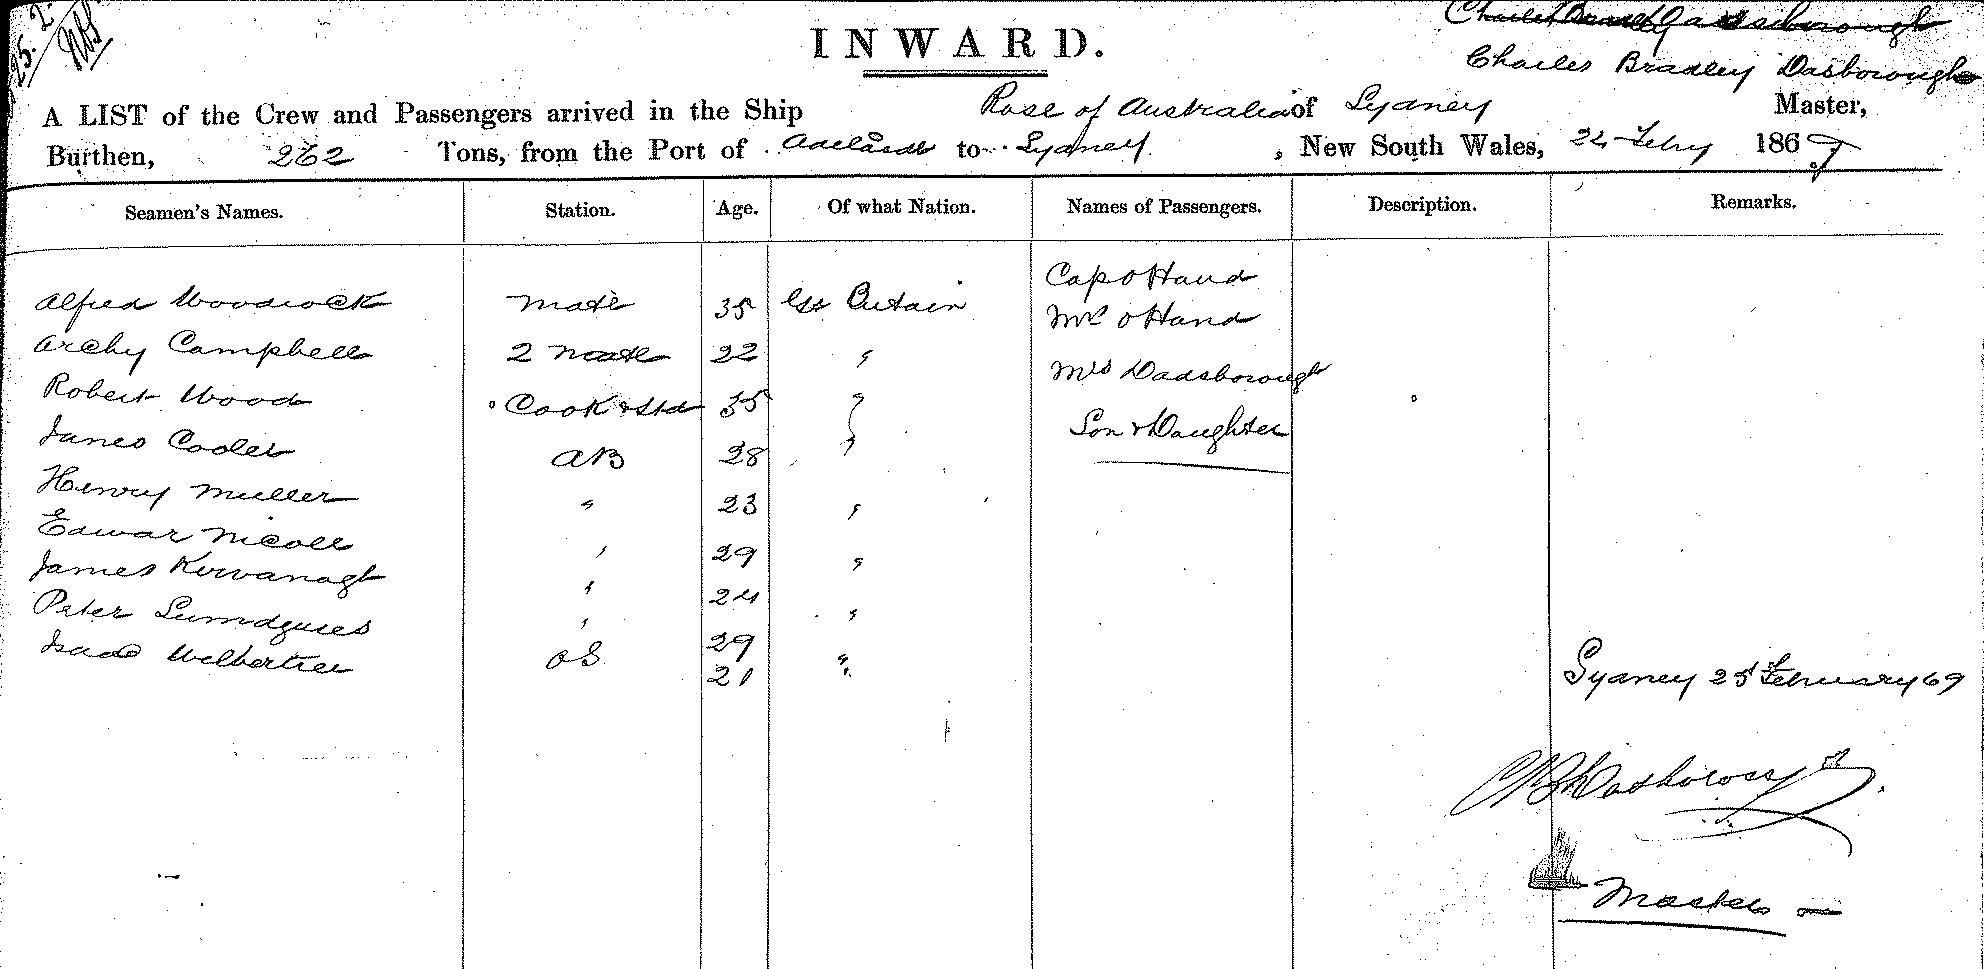 25. 2.
INWARD.
Charles Bradley Dasborough
A LIST of the Crew and Passengers arrived in the Ship Rose of Australia of Sydney Master,
Burthen, 262 Tons, from the Port of Adelaide to Sydney, New South Wales, 24 Febry 1869
Seamen's Names. Station. Age. Of what Nation. Names of Passengers. Description. Remarks.
Cap O Hand
Alfred Woodcock Mate 35 Gt Britain
Mrs O Hand
Archy Campbell 2 Mate 22 "
Mrs Dadsborough
Robert Wood Cook & Std 35 "
Son & Daughter
James Cooler AB 28 "
Henry Muller " 23 "
Edwar Nicoll " 29 "
James Kavanagt " 24 "
Peter " 29 "
Isaac OS 21 "
Sydney 25 February 69
CB Dasborough
Master